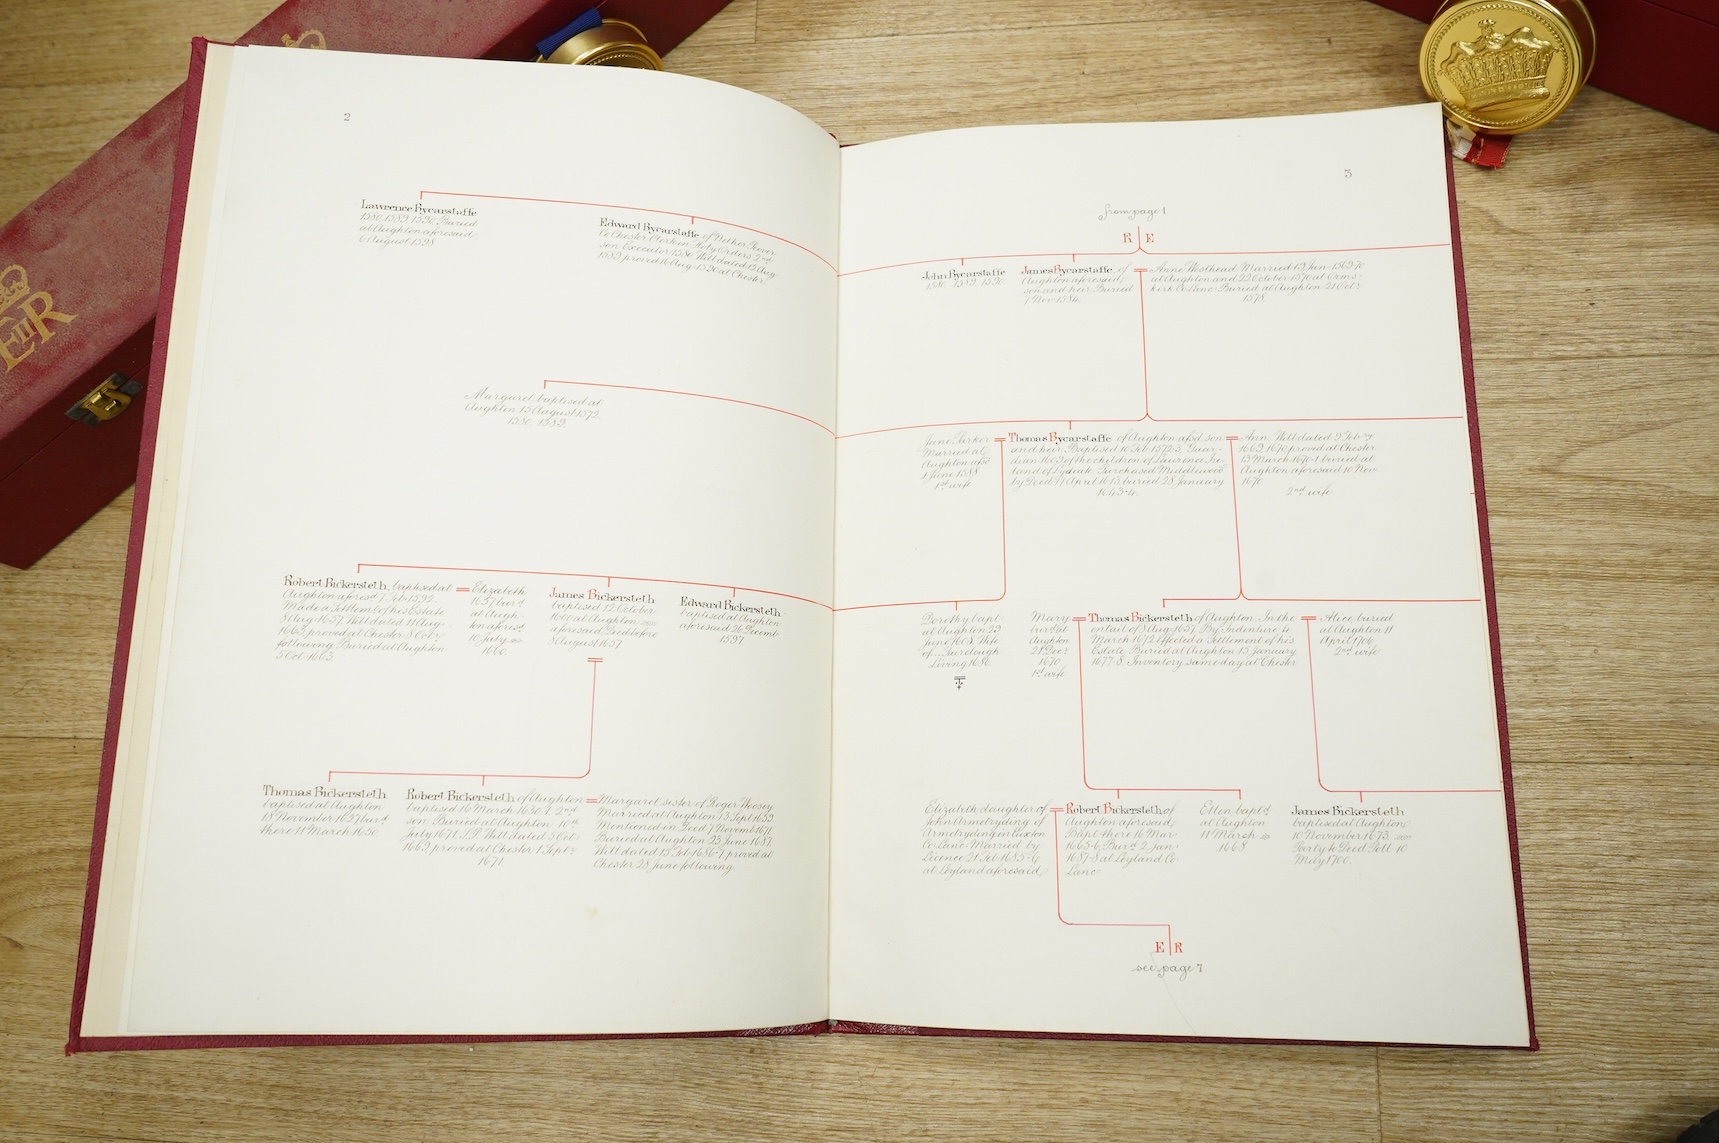 EIIR
2
Lawrence Bycarstaffe
1580, 1582, 1590. Buried
at Aughton aforesaid
6 August 1598
Edward Bycarstaffe of Nether Peover
Co Chester Clerk in Holy Orders 2nd
son Executor 1590 Will dated 12 Aug
1582 proved 16 Aug 1590 at Chester
Margaret baptised at
Aughton 15 August 1572.
1580. 1582.
Robert Bickersteth, baptised at
Aughton aforesd 7 Feb 1592.
Made a Settlemt of his Estate
8 Aug 1657. Will dated 11 Aug.
1663, proved at Chester 8 Octr
following. Buried at Aughton
5 Oct. 1663.
Elizabeth
1657 burd
at Augh-
ton aforesd
10 July
1660.
James Bickersteth
baptised 12 October
1600 at Aughton
aforesaid Died before
8 August 1657.
Edward Bickersteth
baptised at Aughton
aforesaid 26 Decemb
1597
Thomas Bickersteth
baptised at Aughton
18 November 1627 burd
there 11 March 1650
Robert Bickersteth of Aughton
baptised 16 March 1630-1 2nd
son. Buried at Aughton 10th
July 1671. Will dated 5 Oct.
1669, proved at Chester 1 Sept.
1671.
Margaret sister of Roger Woosey
Married at Aughton 13 Sept 1659
Mentioned in Deed 7 Novemb 1671
Buried at Aughton 23 June 1687.
Will dated 15 Feb 1686-7 proved at
Chester 28 June following.
3
from page 1
R E
John Bycarstaffe
1580. 1582. 1590.
James Bycarstaffe of
Aughton aforesaid,
son and heir. Buried
7 Nov. 1584.
Anne Westhead Married 19 Jan. 1569-70
at Aughton and 22 October 1570 at Orms-
kirk Co Lanc. Buried at Aughton 21 Octr
1578
Jane Parker
Married at
Aughton afsd
1 June 1588
1st wife
Thomas Bycarstaffe of Aughton afsd son
and heir. Baptised 10 Feb 1572-3. Guar-
dian 1609 of the children of Lawrence Ire-
land of Lydiate Purchased Middlewood
by Deed 11 April 1613, buried 28 January
1643-4.
Ann. Will dated 9 Feb-y
1669, 1670, proved at Chester
13 March 1670-1 buried at
Aughton aforesaid 10 Nov
1670
2nd wife
Dorothy bapt
at Aughton 29
June 1608 Wife
of . . Fairclough
Living 1680.
Mary
burd at
Aughton
21 Decr
1670
1st wife
Thomas Bickersteth of Aughton. In the
entail of 8 Aug 1657. By Indenture 16
March 1672 effected a Settlement of his
Estate. Buried at Aughton 15 January
1677-8. Inventory same day at Chester
Alice buried
at Aughton 11
April 1700
2nd wife
Elizabeth daughter of
John Armetryding of
Armetryding in Euxton
Co Lanc Married by
Licence 21 Feb 1685-6
at Leyland aforesaid,
Robert Bickersteth of
Aughton aforesaid,
Bapt there 16 Mar.
1665-6, Burd 2 Jan.
1687-8 at Leyland Co.
Lanc
Ellen baptd
at Aughton
11 March
1668
James Bickersteth
baptised at Aughton
10 November 1673
Party to Deed Poll 10
May 1700.
E R
see page 7